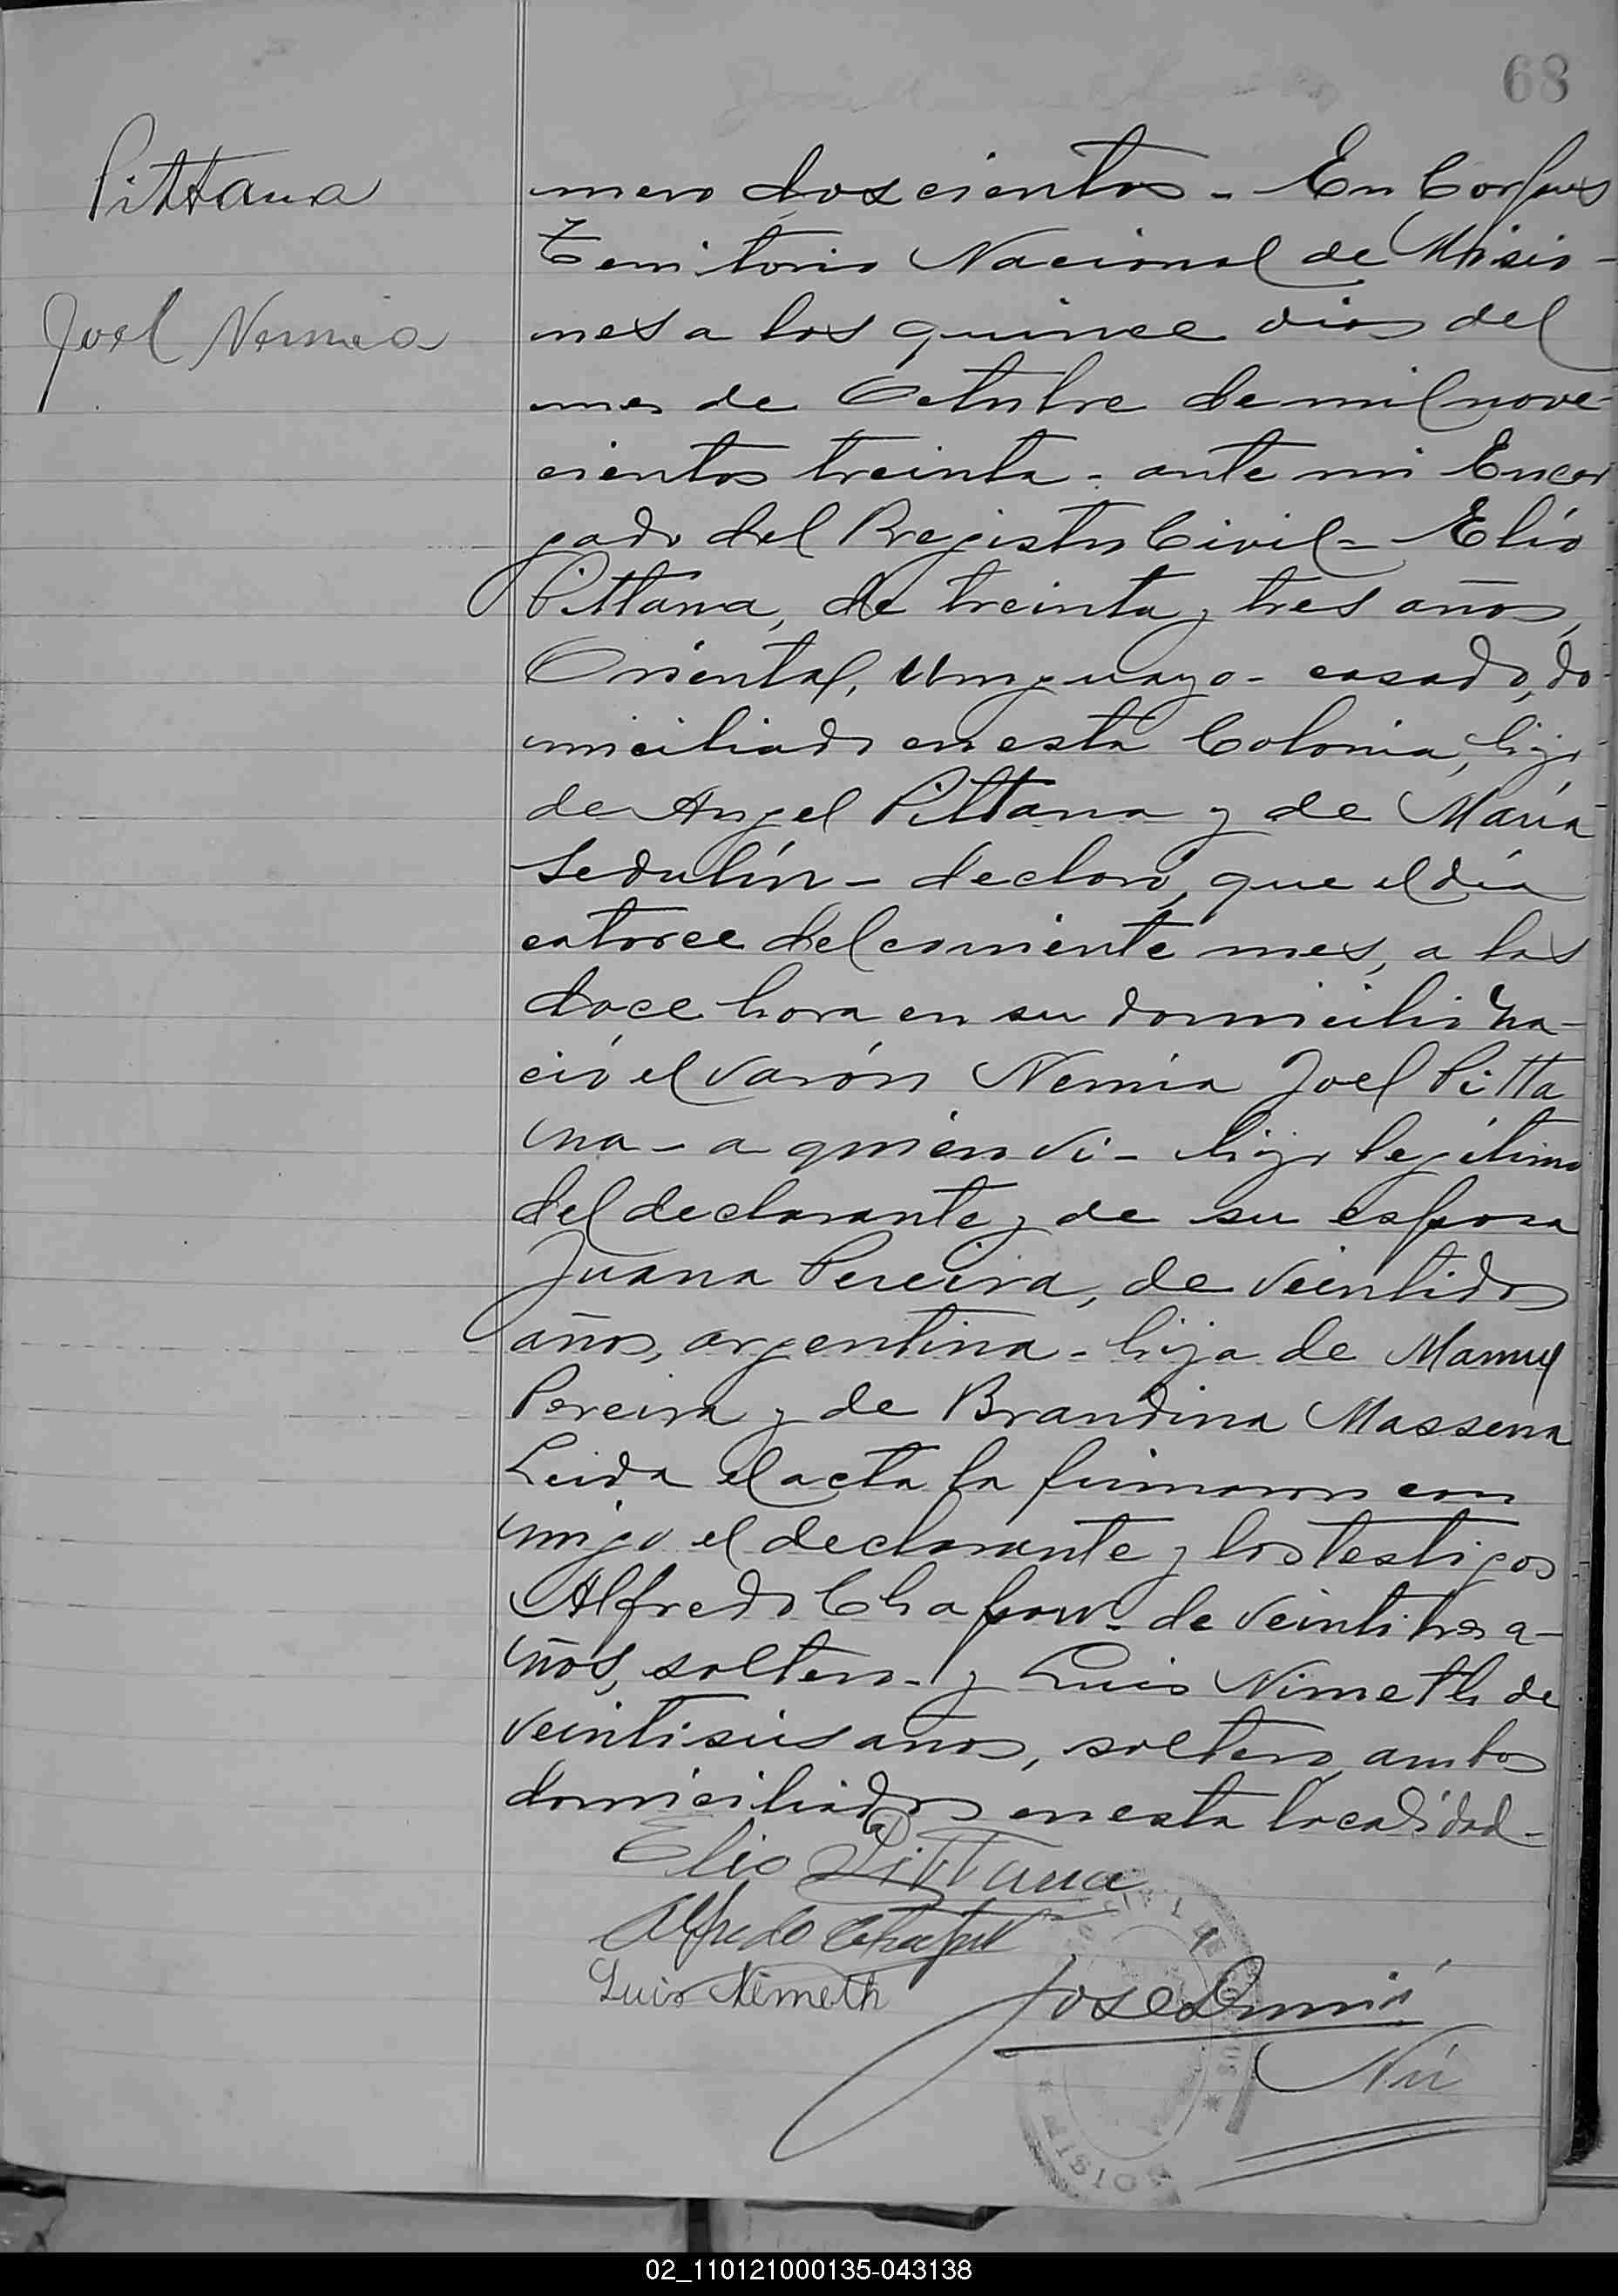 68
Pittana
Joel Nemia
mero doscientos - En Corpus
Territorio Nacional de Misio-
nes a los quince dias del
mes de Octubre de mil nove-
cientos treinta - ante mi Encar
gado del Registro Civil - Elío
Pittana, de treinta y tres años,
Oriental, Uruguayo - casado, do-
miciliado en esta Colonia, hijo
de Angel Pittana y de María
Sedulín - declaró, que el día
catorce del corriente mes, a las
doce hora en su domicilio na-
ció el varón Nemia Joel Pitta
na - a quien vi - hijo legítimo
del declarante y de su esposa
Juana Pereira, de veintidos
años, argentina - hija de Manuel
Pereira y de Brandina Massena
Leida el acta la firmaron con
migo el declarante y los testigos
Alfredo - de veintitres a-
ños, soltero - y Luis Nimeth de
veintiseis años, soltero, ambos
domiciliados en esta localidad -
Elio Pittana
Alfredo
Luis Németh
José
02_110121000135-043138